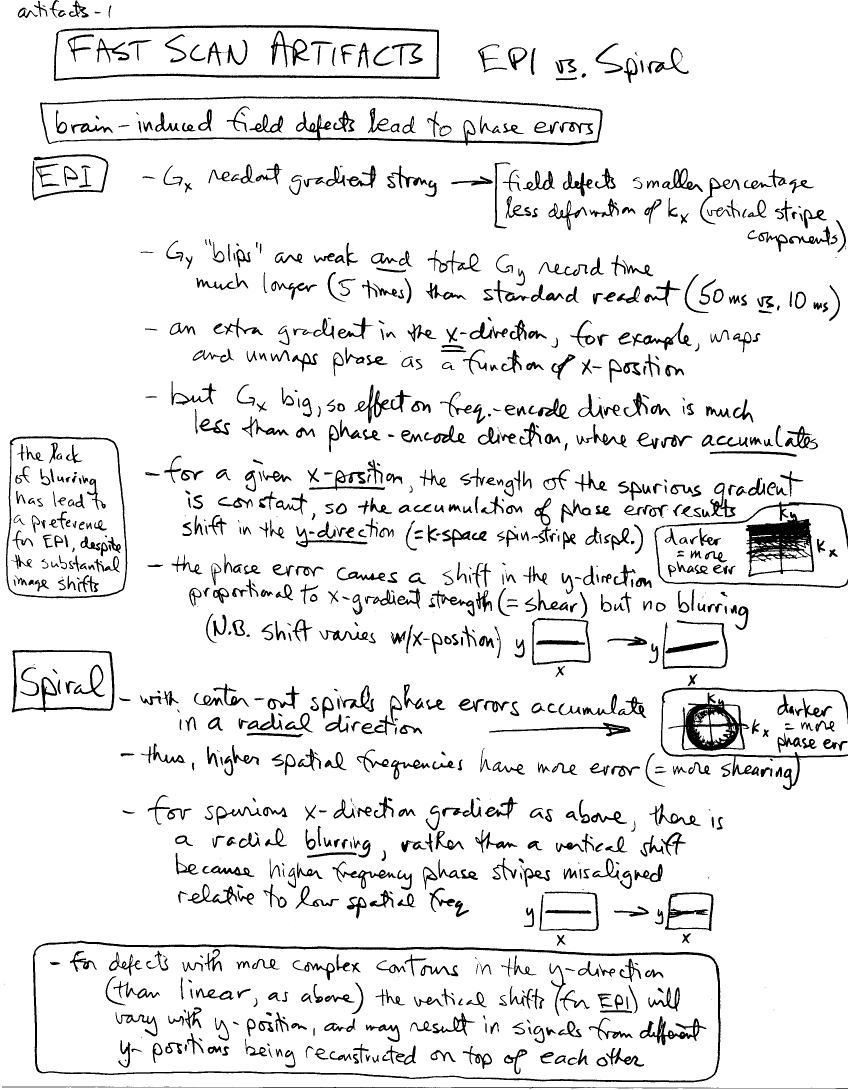 artifacts-1
FAST SCAN ARTIFACTS EPI vs. Spiral
brain-induced field defects lead to phase errors
EPI
- Gx readout gradient strong → field defects smaller percentage
less deformation of kx (vertical stripe
components)
- Gy "blips" are weak and total Gy record time
much longer (5 times) than standard readout (50 ms vs. 10 ms)
- an extra gradient in the x-direction, for example, wraps
and unwraps phase as a function of x-position
- but Gx big, so effect on freq.-encode direction is much
less than on phase-encode direction, where error accumulates
the lack
of blurring
has lead to
a preference
for EPI, despite
the substantial
image shifts
- for a given x-position, the strength of the spurious gradient
is constant, so the accumulation of phase error results
shift in the y-direction (=k-space spin-stripe displ.)
darker
= more
phase err
ky
kx
- the phase error causes a shift in the y-direction
proportional to x-gradient strength (= shear) but no blurring
(N.B. shift varies w/x-position) y → y
x x
Spiral
- with center-out spirals phase errors accumulate
in a radial direction →
ky
kx
darker
= more
phase err
- thus, higher spatial frequencies have more error (= more shearing)
- for spurious x-direction gradient as above, there is
a radial blurring, rather than a vertical shift
because higher frequency phase stripes misaligned
relative to low spatial freq
y → y
x x
- for defects with more complex contours in the y-direction
(than linear, as above) the vertical shifts (for EPI) will
vary with y-position, and may result in signals from different
y-positions being reconstructed on top of each other